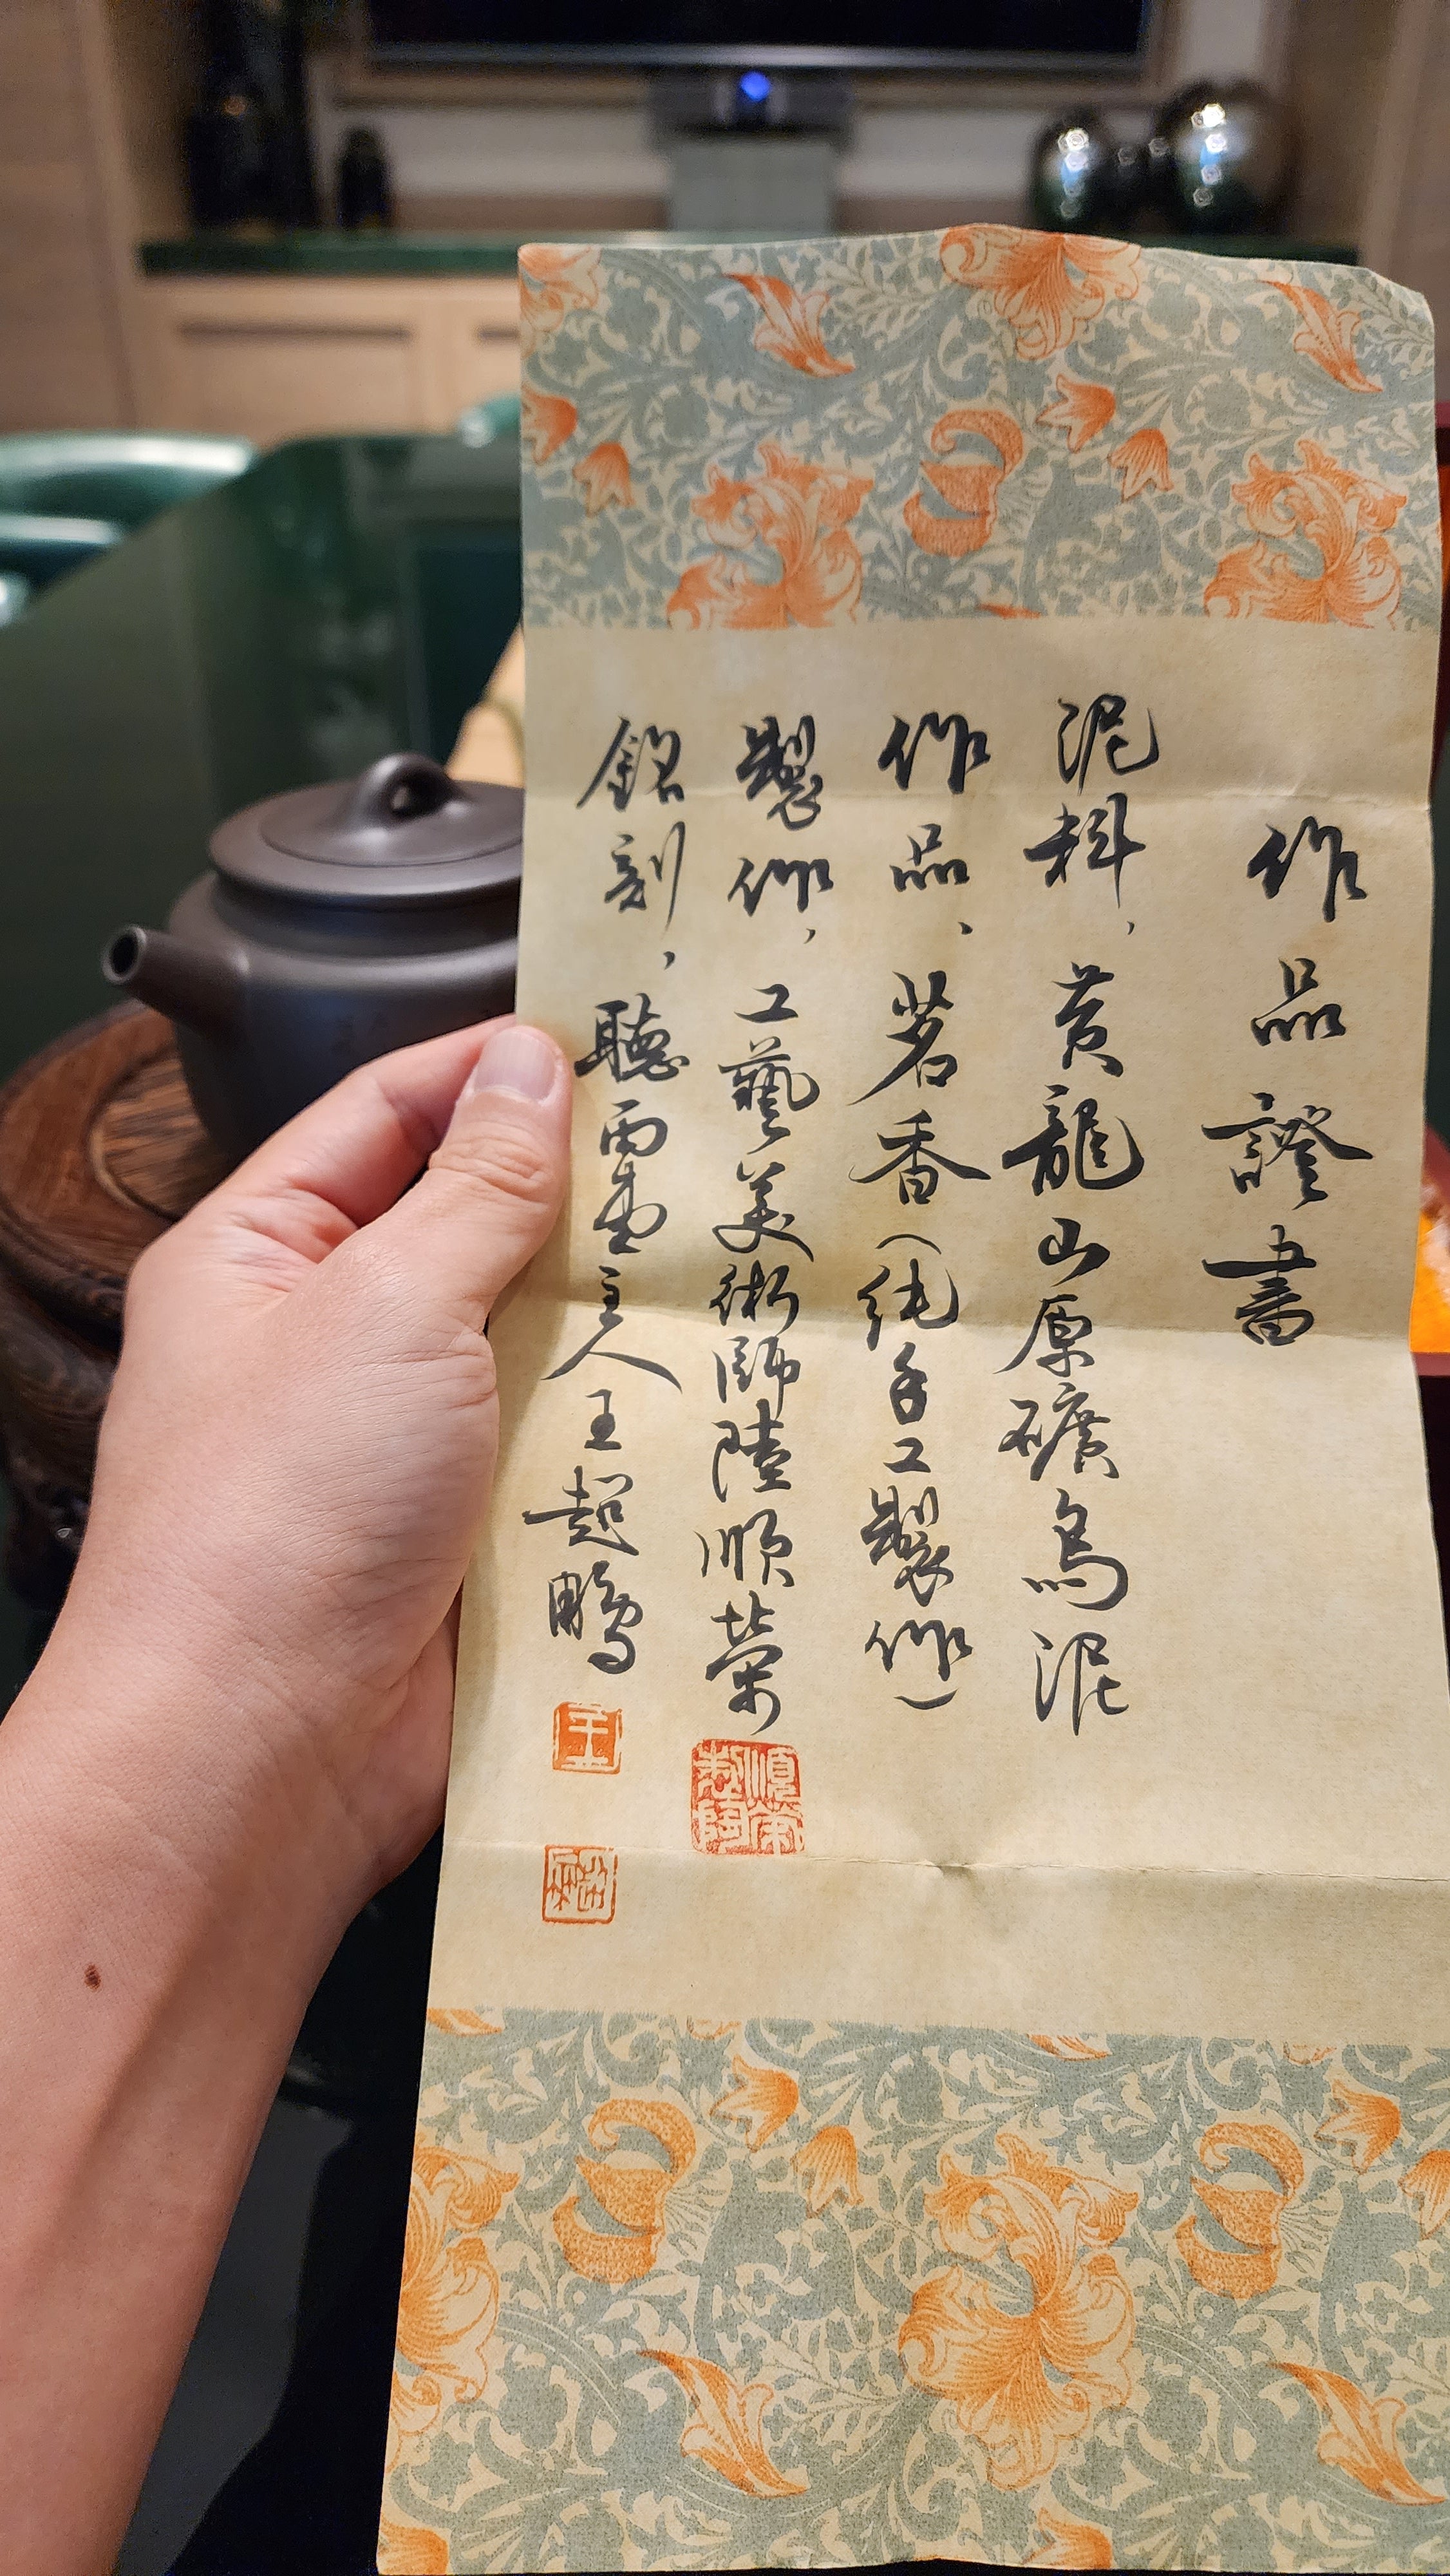 作品證書
泥料，黄龍山原礦烏泥
作品、茗香（純手工製作）
製作，工藝美術師陸順榮
銘刻，聽雨畫主人王超鵬
順榮製陶
王